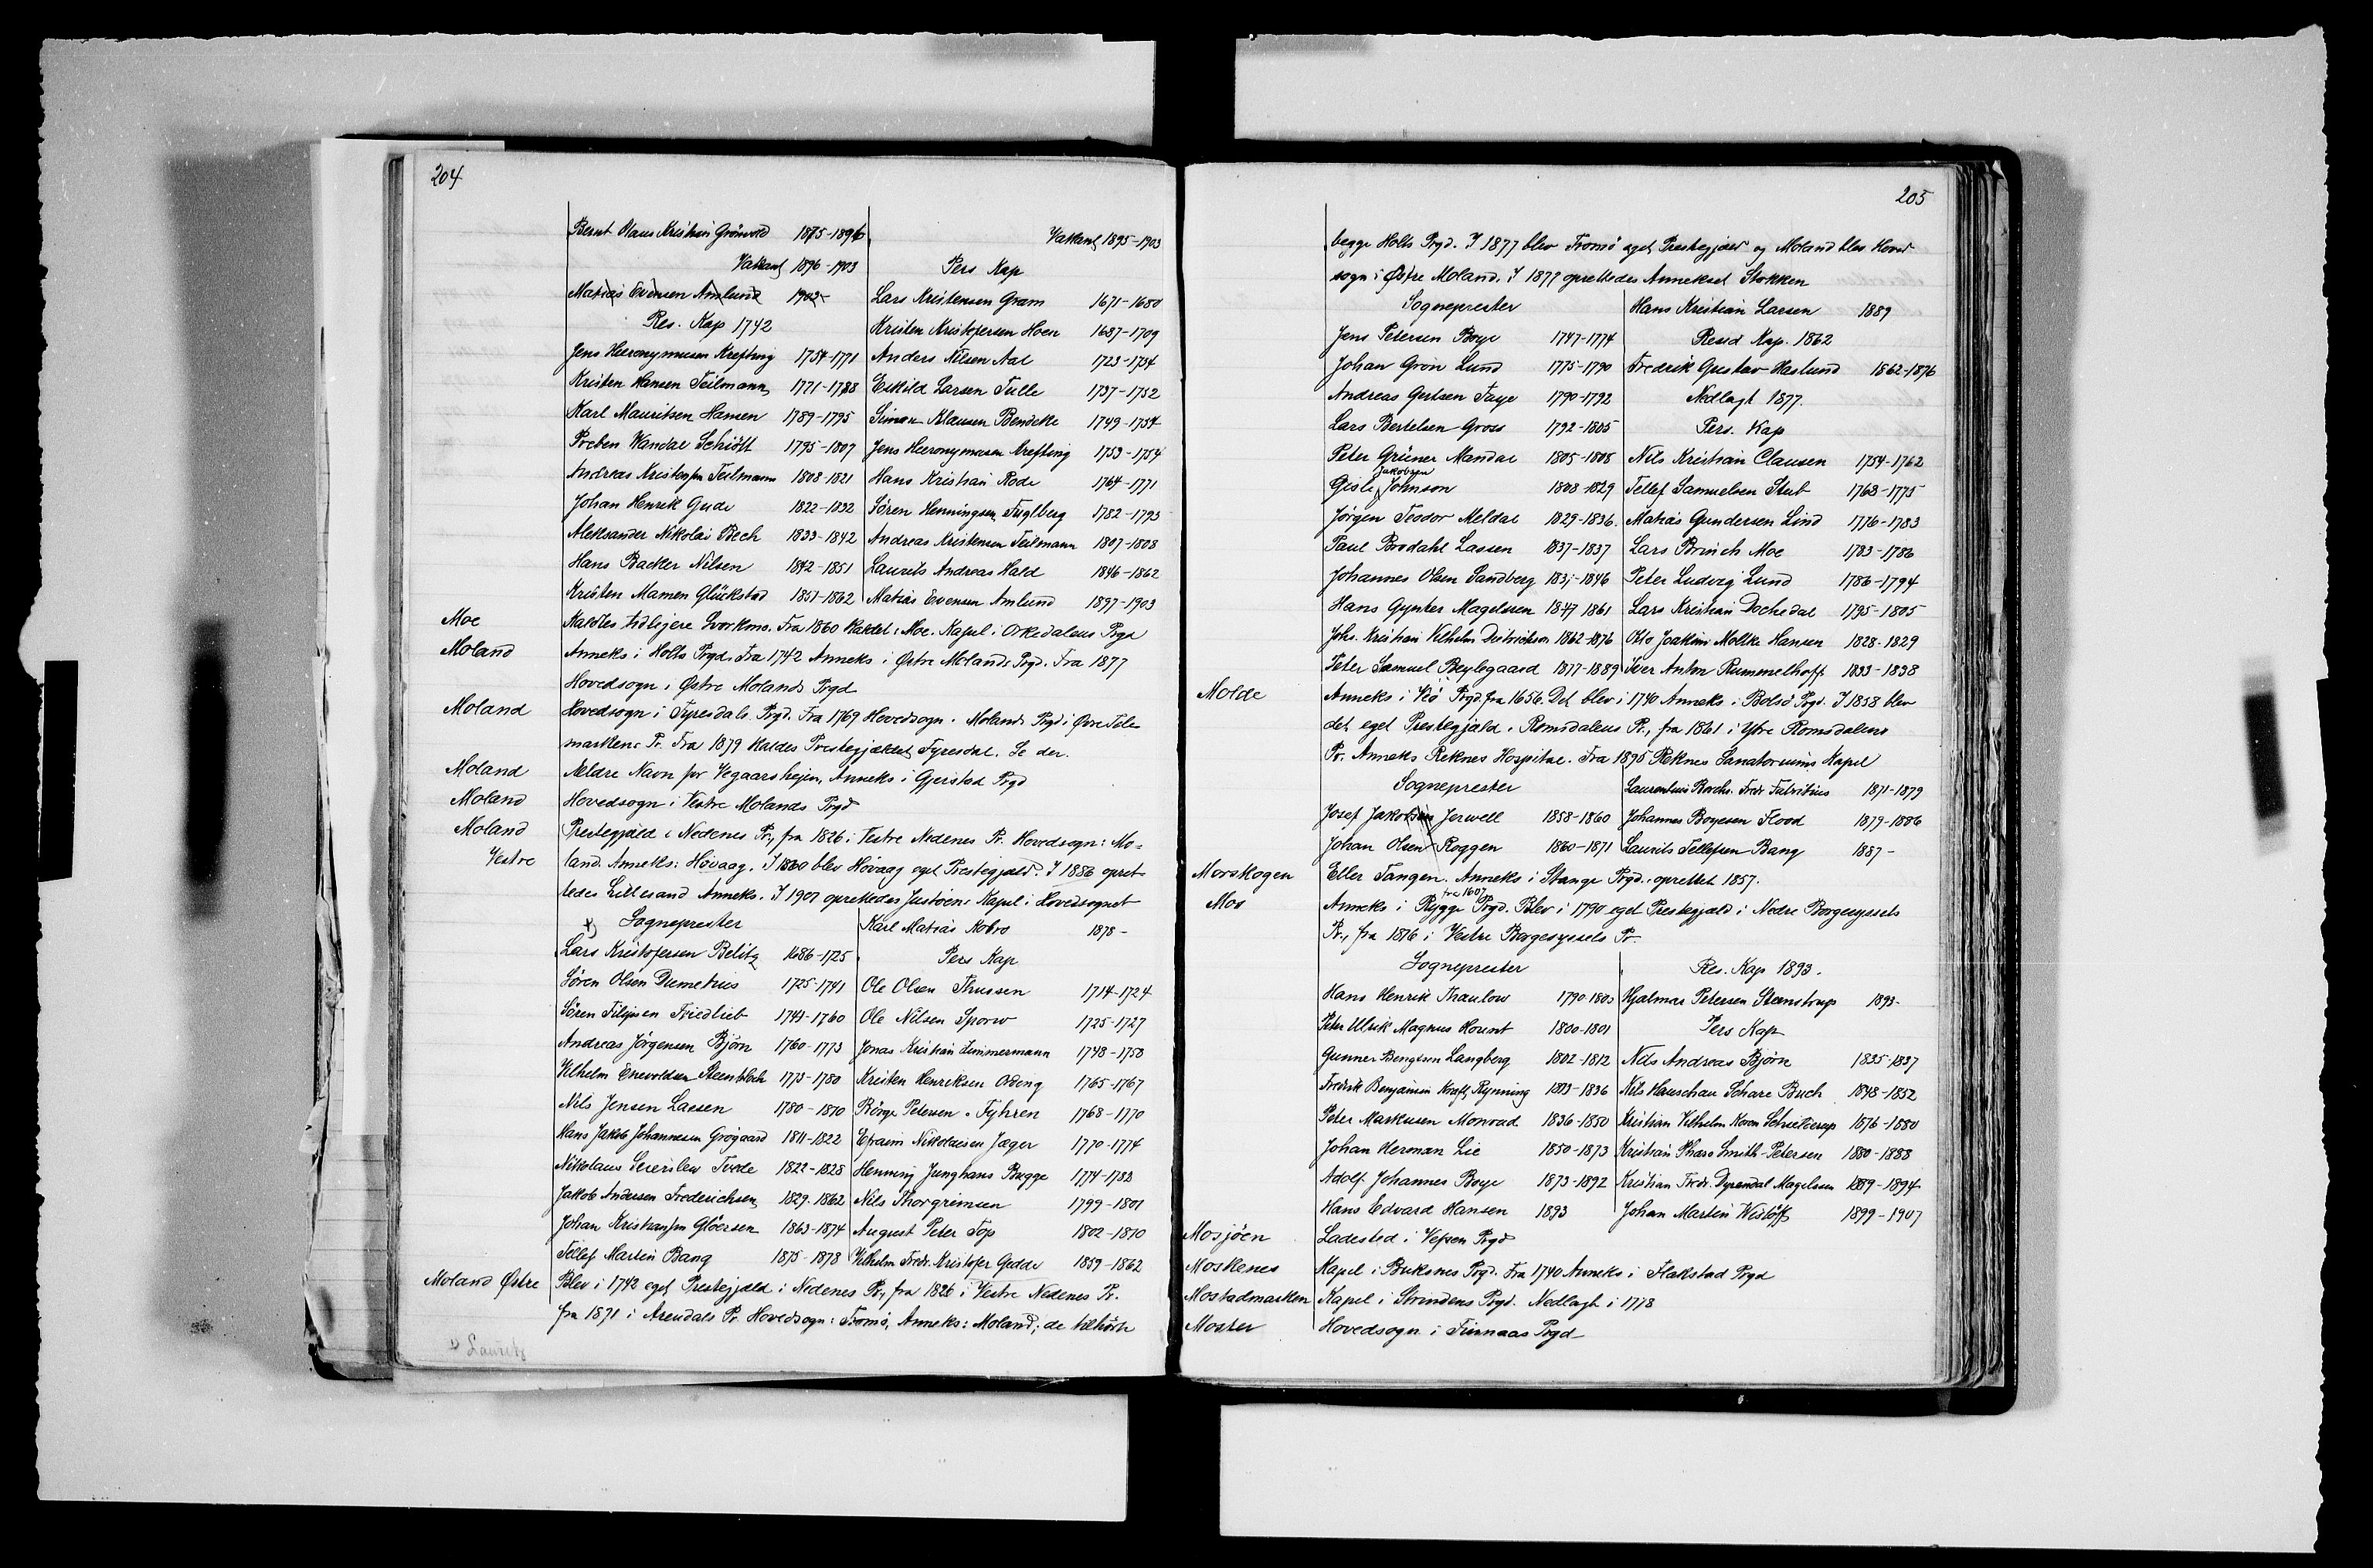 204
Bernt Olaus Kristian Grönvold 1875-1896
Vakant 1896-1903
Matias Evensen Amlund 1902-
Res. Kap 1742
Jens Hieronymusen Krefting 1754-1771
Kristen Hansen Teilmann 1771-1788
Karl Mauritsen Hansen 1789-1795
Preben Wandal Schiött 1795-1807
Andreas Kristensen Teilmann 1808-1821
Johan Henrik Gude 1822-1832
Aleksander Nikolai Bech 1833-1842
Hans Backer Nilsen 1842-1851
Kristen Mamen Glückstad 1851-1862
Vakant 1895-1903
Pers Kap
Lars Kristensen Gram 1671-1680
Kristen Kristofersen Hoen 1687-1709
Anders Nilsen Aal 1723-1734
Eskild Larsen Tulle 1737-1752
Simon Klausen Bendeke 1749-1754
Jens Hieronymusen Krefting 1753-1754
Hans Kristian Rode 1764-1771
Sören Henningsen Fuglberg 1782-1793
Andreas Kristensen Teilmann 1807-1808
Laurits Andreas Hald 1846-1862
Matias Evensen Amlund 1897-1903
Moe Kaldtes tidligere Svorkmo. Fra 1860 kaldet Moe. Kapel i Orkedalens Prgd
Moland Anneks i Holts Prgd. Fra 1742 Anneks i Østre Molands Prgd. Fra 1877
Hovedsogn i Østre Molands Prgd
Moland Hovedsogn i Tyresdals Prgd. Fra 1769 Hovedsogn i Molands Prgd i Øvre Tele
markens Pr. Fra 1879 kaldes Prestegjældet Tyresdal. Se der.
Moland Ældre Navn for Vegaarshejen, Anneks i Gjerstad Prgd
Moland Hovedsogn i Vestre Molands Prgd
Moland Prestegjæld i Nedenes Pr, fra 1826 i Vestre Nedenes Pr. Hovedsogn: Mo-
Vestre land. Anneks: Hövaag. I 1860 blev Hövaag eget Prestegjæld. I 1886 opret
tedes Lillesand Anneks. I 1907 oprettedes Justöens Kapel i Hovedsognet
Sogneprester
Lars Kristofersen Belitz 1686-1725
Sören Olsen Dumetrius 1725-1741
Sören Filipsen Friedlieb 1741-1760
Andreas Jörgensen Björn 1760-1773
Vilhelm Enevoldsen Steenbloch 1773-1780
Nils Jensen Lassen 1780-1810
Hans Jakob Johannesen Grögaard 1811-1822
Nikolaus Seierslev Tvede 1822-1828
Jakob Andersen Frederichsen 1829-1862
Johan Kristiansen Glöersen 1863-1874
Tellef Martin Bang 1875-1878
Karl Matias Nobro 1878-
Pers Kap
Ole Olsen Thussen 1714-1724
Ole Nilsen Sporw 1725-1727
Jonas Kristian Zimmermann 1748-1750
Kristen Henriksen Ordeng 1765-1767
Börge Petersen Fyhren 1768-1770
Efraim Nikolaisen Jæger 1770-1774
Henning Junghans Bugge 1774-1782
Nils Thorgrimsen 1799-1801
August Peter Top 1802-1810
Vilhelm Fredr. Kristofer Gedde 1859-1862
Moland Østre Blev i 1742 eget Prestegjæld i Nedenes Pr, fra 1826 i Vestre Nedenes Pr.
fra 1871 i Arendals Pr. Hovedsogn: Tromö, Anneks: Moland; de tilhörte
1) Lauritz
205
begge Holts Prgd. I 1877 blev Tromö eget Prestegjæld og Moland blev Hoved
sogn i Østre Moland. I 1879 oprettedes Annekset Stokken
Sogneprester
Jens Petersen Boye 1747-1774
Johan Grön Lund 1775-1790
Andreas Gertsen Faye 1790-1792
Lars Bertelsen Gross 1792-1805
Peter Grüner Mandal 1805-1808
Jakobsen
Gisle Johnson 1808-1829
Jörgen Teodor Meldal 1829-1836
Paul Brodahl Lassen 1837-1837
Johannes Olsen Sandberg 1837-1846
Hans Gynter Magelssen 1847 1861
Johs. Kristian Vilhelm Deitrichson 1862-1876
Peter Samuel Beylegaard 1877-1889
Hans Kristian Larsen 1889
Resid Kap. 1862
Fredrik Gustav Haslund 1862-1876
Nedlagt 1877.
Pers. Kap
Nils Kristian Clausen 1754-1762
Tellef Samuelsen Stub 1763-1775
Matias Gundersen Lind 1776-1783
Lars Brinch Moe 1783-1786
Peter Ludvig Lund 1786-1794
Lars Kristian Dochedal 1795-1805
Otto Joakim Moltke Hansen 1828-1829
Iver Anton Rummelhoff 1833-1838
Molde Anneks i Veö Prgd. fra 1656. Det blev i 1740 Anneks i Bolsö Prgd. I 1858 blev
det eget Prestegjæld i Romsdalens Pr., fra 1861 i Ytre Romsdalens
Pr. Anneks Reknes Hospital. Fra 1895 Reknes Sanatoriums Kapel
Sogneprester
Josef Jakobsen Jerwell 1858-1860
Johan Olsen Roggen 1860-1871
Laurentius Borchs. Fredr Fabritius 1871-1879
Johannes Boyesen Flood 1879-1886
Laurits Tellefsen Bang 1887-
Morskogen Eller Tangen. Anneks i Stange Prgd. oprettet 1857.
fra 1607
Mos Anneks i Rygge Prgd. Blev i 1790 eget Prestegjæld i Nedre Borgesyssels
Pr., fra 1876 i Vestre Borgesyssels Pr.
Sogneprester
Hans Henrik Thaulow 1790-1800
Peter Ulrik Magnus Hount 1800-1801
Gunner Bengtsen Langberg 1802-1812
Fredrik Benjamin Kraft Rynning 1813-1836
Peter Markusen Monrad 1836-1850
Johan Herman Lie 1850-1873
Adolf Johannes Boye 1873-1892
Hans Edvard Hansen 1893
Res. Kap 1893.
Hjalmar Petersen Stenstrup 1893-
Pers Kap
Nils Andreas Björn 1835-1837
Nils Hauschau Schare Buch 1848-1852
1876-1880
Kristian Thaso Smith-Petersen 1880-1888
Kristian Fredr. Dyrendal Magelssen 1889-1894
Johan Martin Wislöff 1899-1907
Mosjöen Ladested i Vefsen Prgd
Moskenes Kapel i Buksnes Prgd. Fra 1740 Anneks i Flakstad Prgd
Mostadmarken Kapel i Strindens Prgd. Nedlagt i 1778
Moster Hovedsogn i Finnaas Prgd